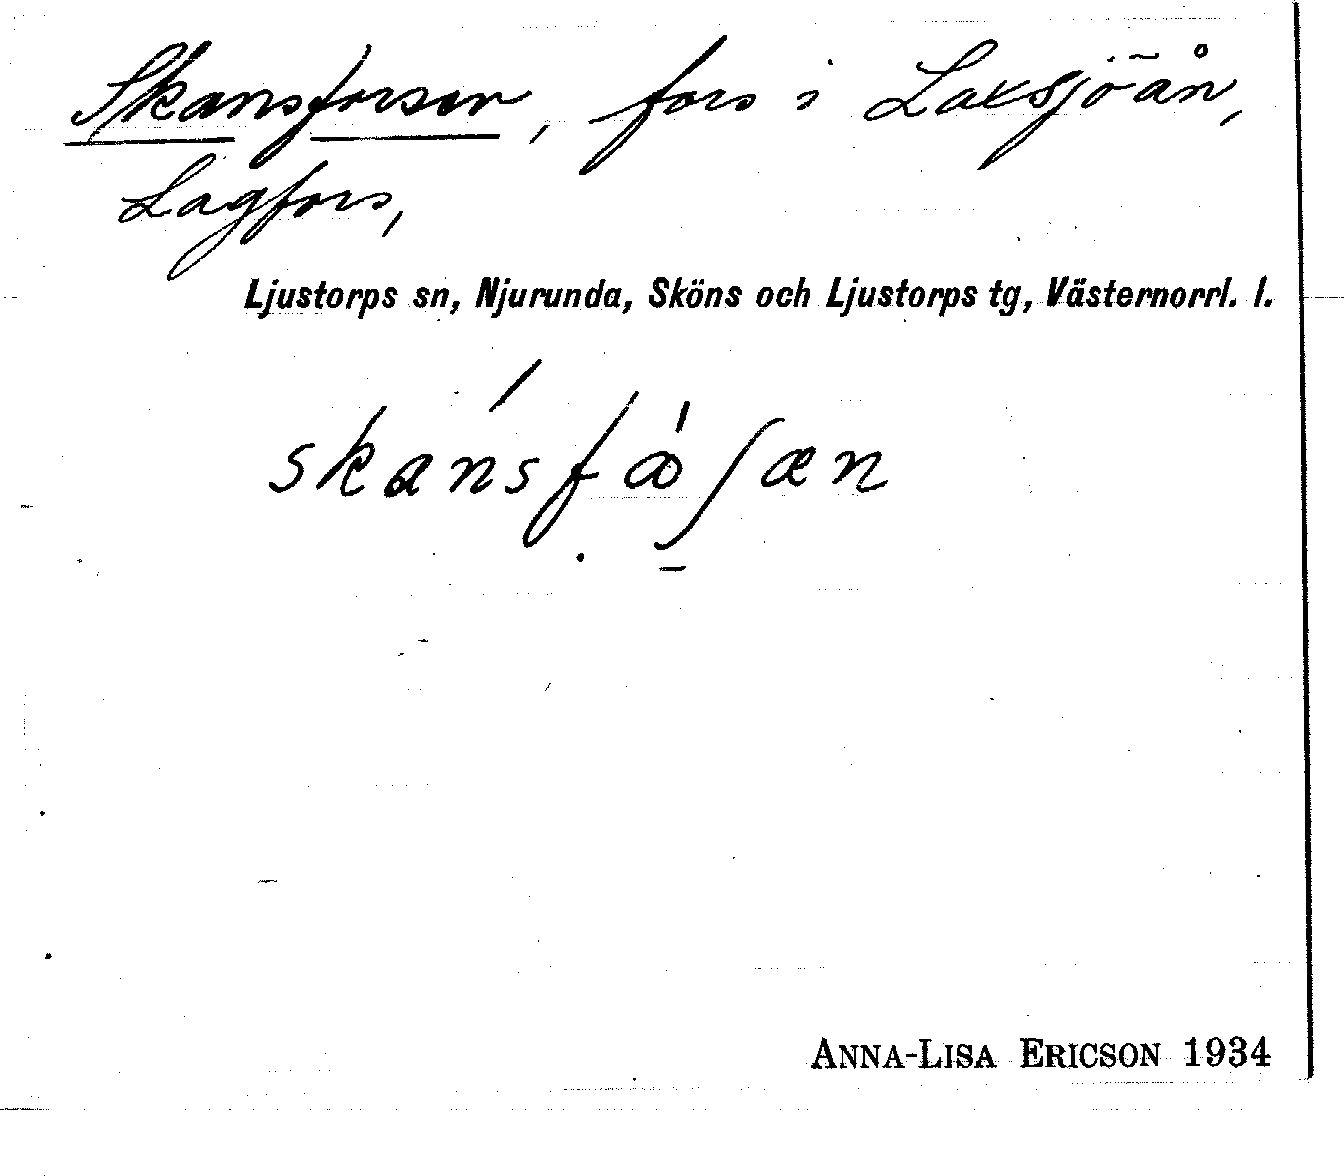 Skansforsen, fors i Laxsjöån,
Lagfors,
Ljustorps sn, Njurunda, Sköns och Ljustorps tg, Västernorrl. l.
ANNA-LISA ERICSON 1934